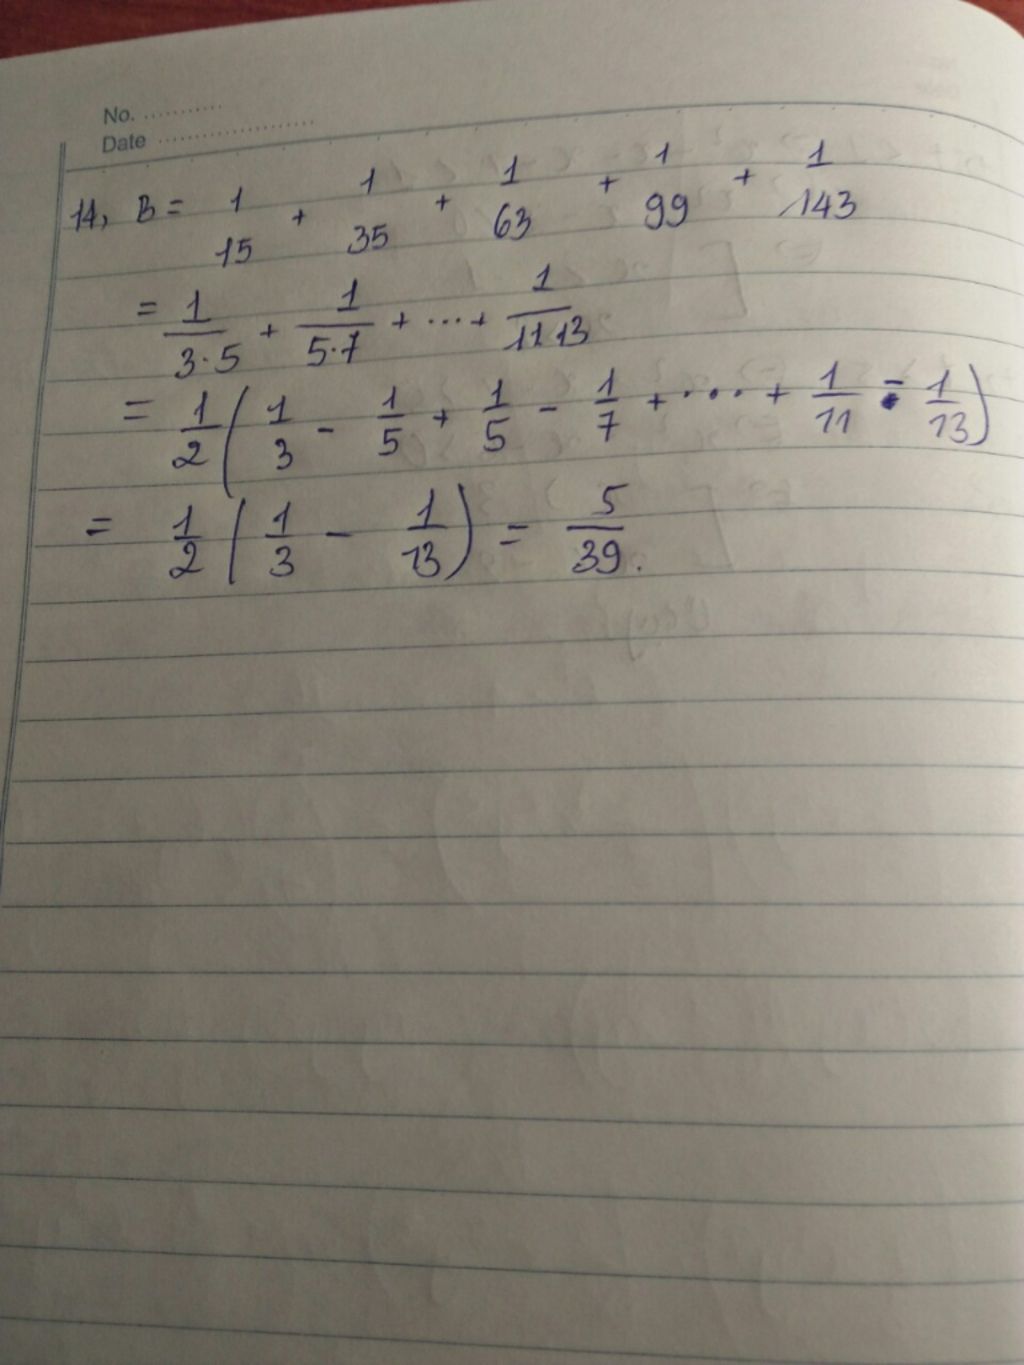 No. ...........
Date ......................
14, B = 1/15 + 1/35 + 1/63 + 1/99 + 1/143
= 1/3·5 + 1/5·7 + ... + 1/11 13
= 1/2 ( 1/3 - 1/5 + 1/5 - 1/7 + ... + 1/11 - 1/13 )
= 1/2 ( 1/3 - 1/13 ) = 5/39.